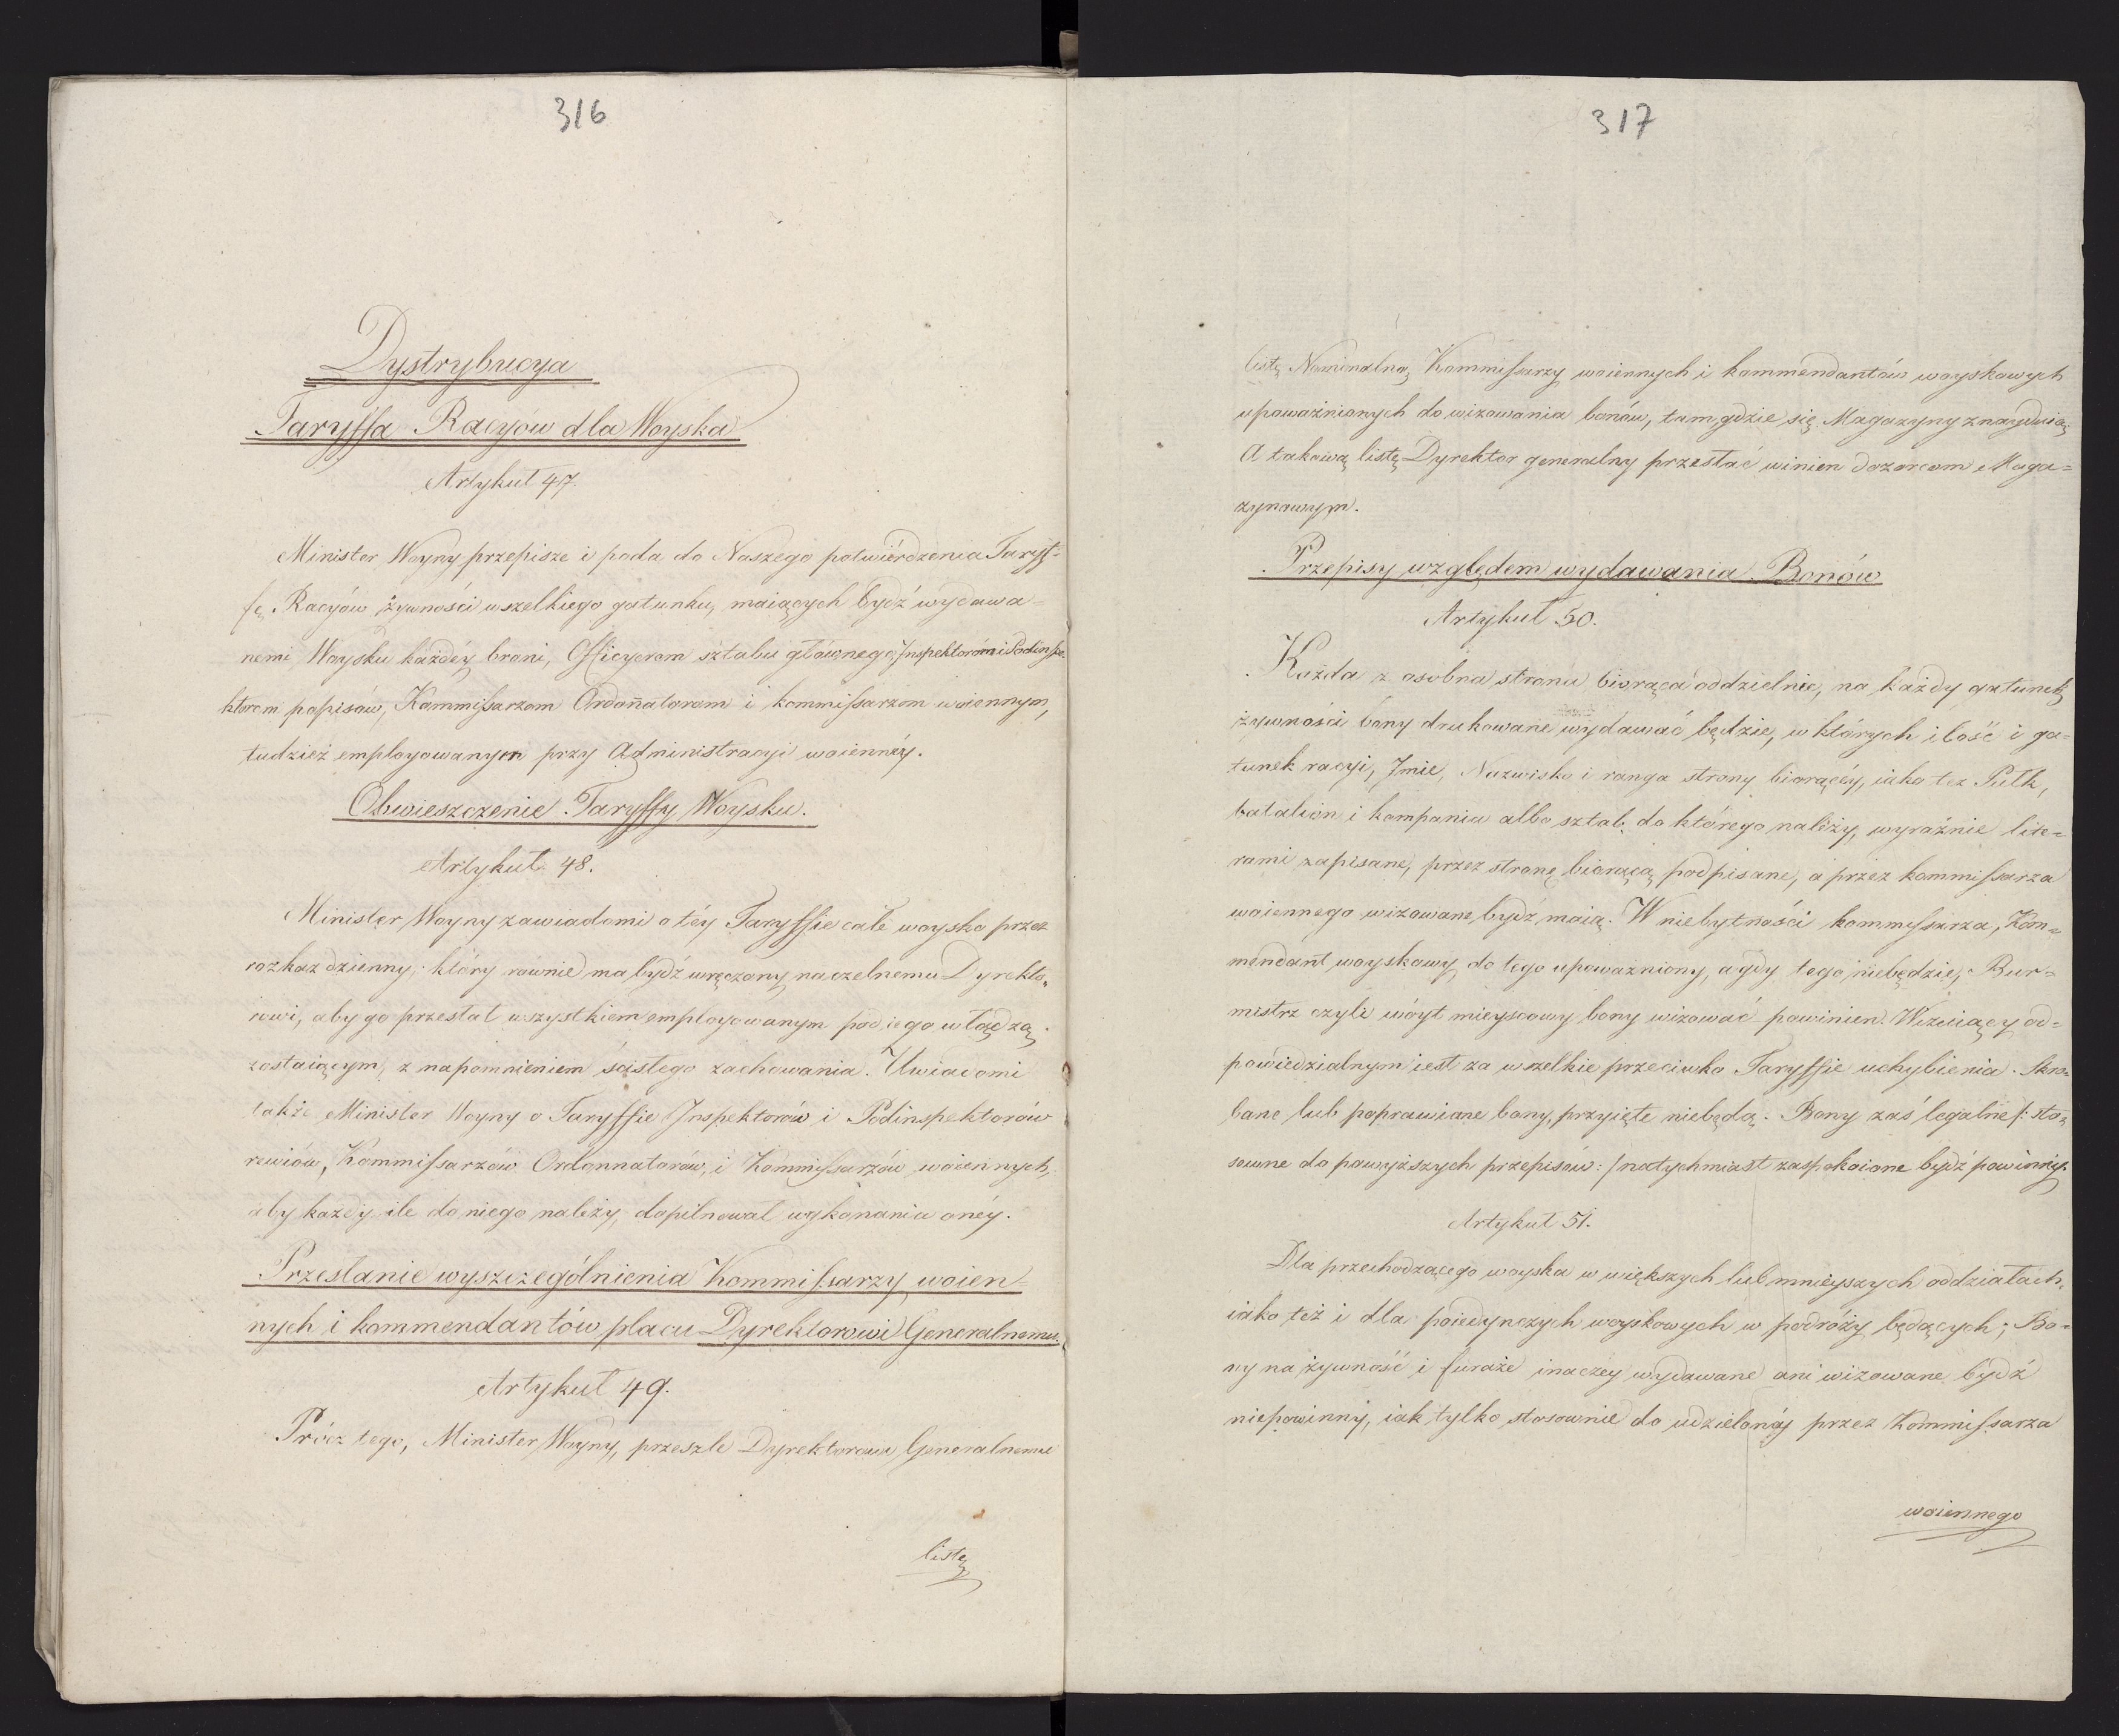 316
Dystrybucya
Taryffa Racyów dla Woyska
Artykuł 47.
Minister Woyny przepisze i poda do Naszego potwiérdzenia Taryf-
fę Racyów żywności wszelkiego gatunku, maiących bydź wydawa=
nemi Woysku każdéy broni, Officyerom sztabu głównego, Inspektorom i Podinspe-
ktorom popisów, Kommissarzom Ordonnatorom i kommissarzom woiennym,
tudzież employowanym przy Administracyi woiennéy.
Obwieszczenie Taryffy Woysku.
Artykuł 48.
Minister Woyny zawiadomi o téy Taryffie całe woysko przez
rozkaz dzienny; który rownie ma bydź wręczony naczelnemu Dyrekto-
rowi, aby go przesłał wszystkiem employowanym pod iego władzą
zostaiącym, z napomnieniem ścisłego zachowania. Uwiadomi
także Minister Woyny o Taryffie Inspektorów i Podinspektorów
rewiów, Kommissarzów Ordonnatorów, i Kommissarzów woiennych,
aby każdy ile do niego należy, dopilnował wykonania onéy.
Przesłanie wyszczególnienia Kommissarzy woien=
nych i kommendantów placu Dyrektorowi Generalnemu.
Artykuł 49.
Prócz tego, Minister Woyny, przeszle Dyrektorowi Generalnemu
listę
317
listę Nominalną Kommissarzy woiennych i kommendantów woyskowych
upoważnionych do wizowania bonów, tam, gdzie się Magazyny znayduią
A takową listę Dyrektor generalny przesłać winien dozorcom Maga=
zynowym.
Przepisy względem wydawania Bonów
Artykuł 50.
Każda z osobna strona biorąca oddzielnie, na każdy gatunek
żywności bony drukowane wydawać będzie, w których ilość i ga=
tunek racyi, Imie, Nazwisko i ranga strony biorącéy, iako tez Pułk,
batalion i kompania albo sztab, do którego należy, wyraźnie lite=
rami zapisane, przez stronę biorącą podpisane, a przez kommissarza
woiennego wizowane bydź maią. W niebytności kommissarza, Kom=
mendant woyskowy do tego upoważniony, a gdy tego niebędzie, Bur=
mistrz czyli wóyt mieyscowy bony wizować powinien. Wizuiący od=
powiedzialnym iest za wszelkie przeciwko Taryffie uchybienia. Skro=
bane lub poprawiane bony, przyięte niebędą. Bony zaś legalne /: sto=
sowne do powyższych przepisów: / natychmiast zaspokoione bydź powinny.
Artykuł 51.
Dla przechodzącego woyska w większych lub mnieyszych oddziałach,
iako też i dla poiedynczych woyskowych w podróży będących; Bo=
ny na żywność i furaże inaczey wydawane ani wizowane bydź
niepowinny, iak tylko stosownie do udzielonéy przez Kommissarza
woiennego